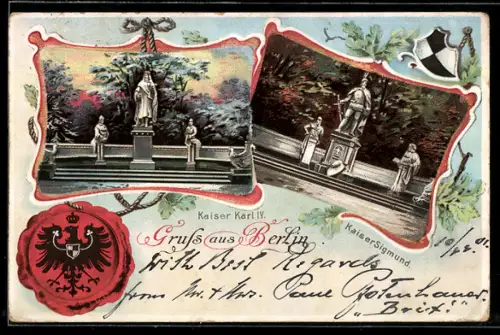 Kaiser Karl IV.
Kaiser Sigmund.
Gruß aus Berlin.
With Best Regards
from Mr. & Mrs. Paul Pfotenhauer
"Brix"